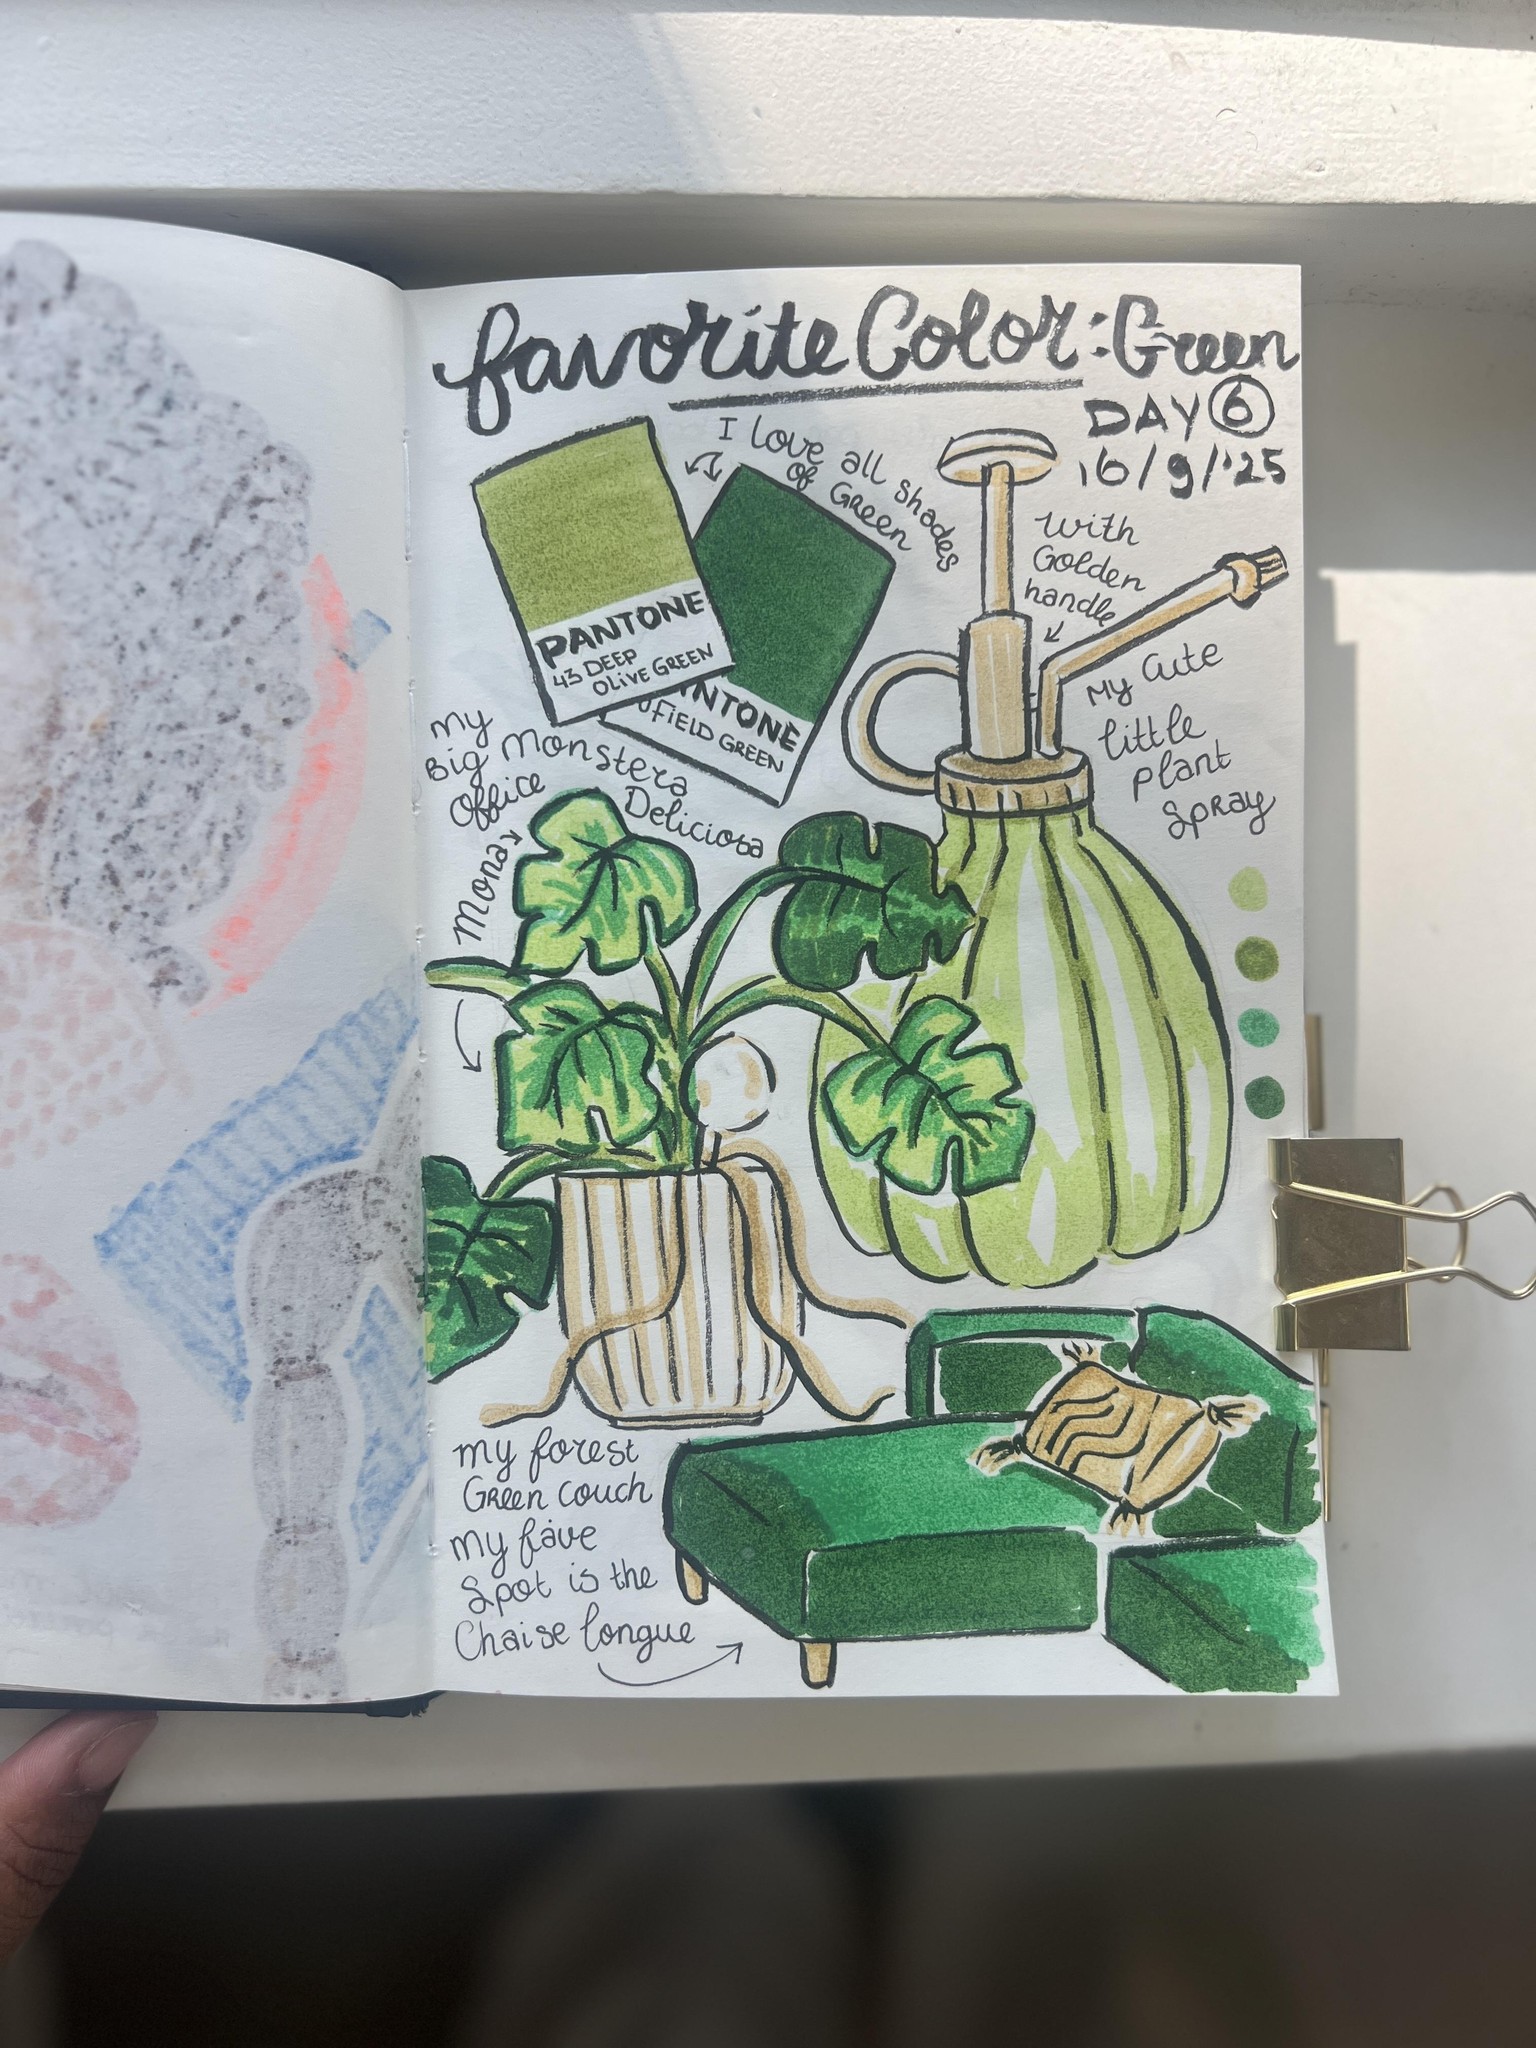 favorite Color: Green
DAY 6
16/9/'25
I love all shades
of Green
PANTONE
43 DEEP
OLIVE GREEN
FIELD GREEN
with
Golden
handle
My Cute
little
plant
Spray
My
Big Monstera
Office
Deliciosa
Mona
my forest
Green couch
My fave
Spot is the
Chaise longue